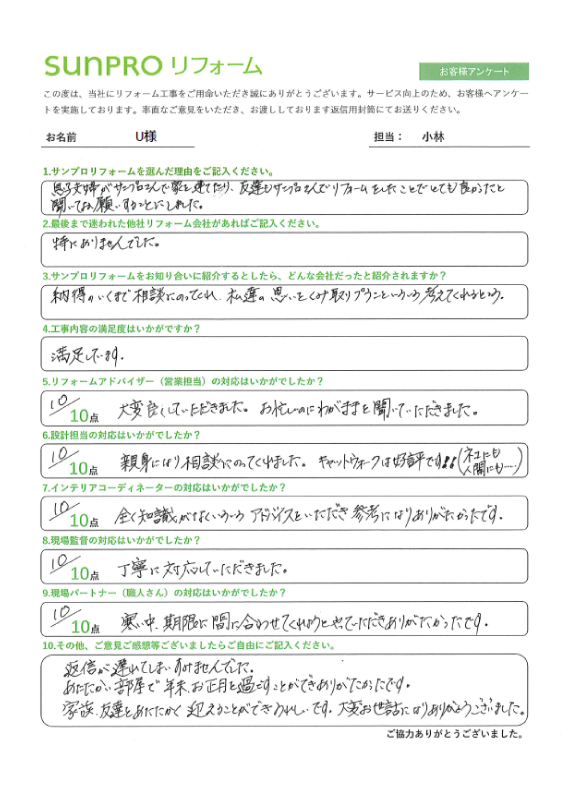 SUNPRO リフォーム
お客様アンケート
この度は、当社にリフォーム工事をご用命いただき誠にありがとうございます。サービス向上のため、お客様へアンケー
トを実施しております。率直なご意見をいただき、お渡ししております返信用封筒にてお送りください。
お名前 U様 担当： 小林
1.サンプロリフォームを選んだ理由をご記入ください。
息子夫婦がサンプロさんで家を建てたり、友達もサンプロさんでリフォームをしたことでとても良かったと
聞いてお願いすることにしました。
2.最後まで迷われた他社リフォーム会社があればご記入ください。
特にありませんでした。
3.サンプロリフォームをお知り合いに紹介するとしたら、どんな会社だったと紹介されますか？
納得がいくまで相談にのってくれ、私達の思いをくみ取りプランといろいろ考えてくれるという。
4.工事内容の満足度はいかがですか？
満足しています。
5.リフォームアドバイザー（営業担当）の対応はいかがでしたか？
10/10点 大変良くしていただきました。お忙しいのにわがままを聞いていただきました。
6.設計担当の対応はいかがでしたか？
10/10点 親身になり相談にのってくれました。キャットウォークは好評です!!(ネコにも
人間にも…)
7.インテリアコーディネーターの対応はいかがでしたか？
10/10点 全く知識がなくいろいろアドバイスをいただき参考になりありがたかったです。
8.現場監督の対応はいかがでしたか？
10/10点 丁寧に対応していただきました。
9.現場パートナー（職人さん）の対応はいかがでしたか？
10/10点 寒い中、期限に間に合わせてくれようとやっていただきありがたかったです。
10.その他、ご意見ご感想等ございましたらご自由にご記入ください。
返信が遅れてしまいすみませんでした。
あたたかい部屋で年末、お正月を過ごすことができありがたかったです。
家族、友達をあたたかく迎えることができうれしいです。大変お世話になりありがとうございました。
ご協力ありがとうございました。